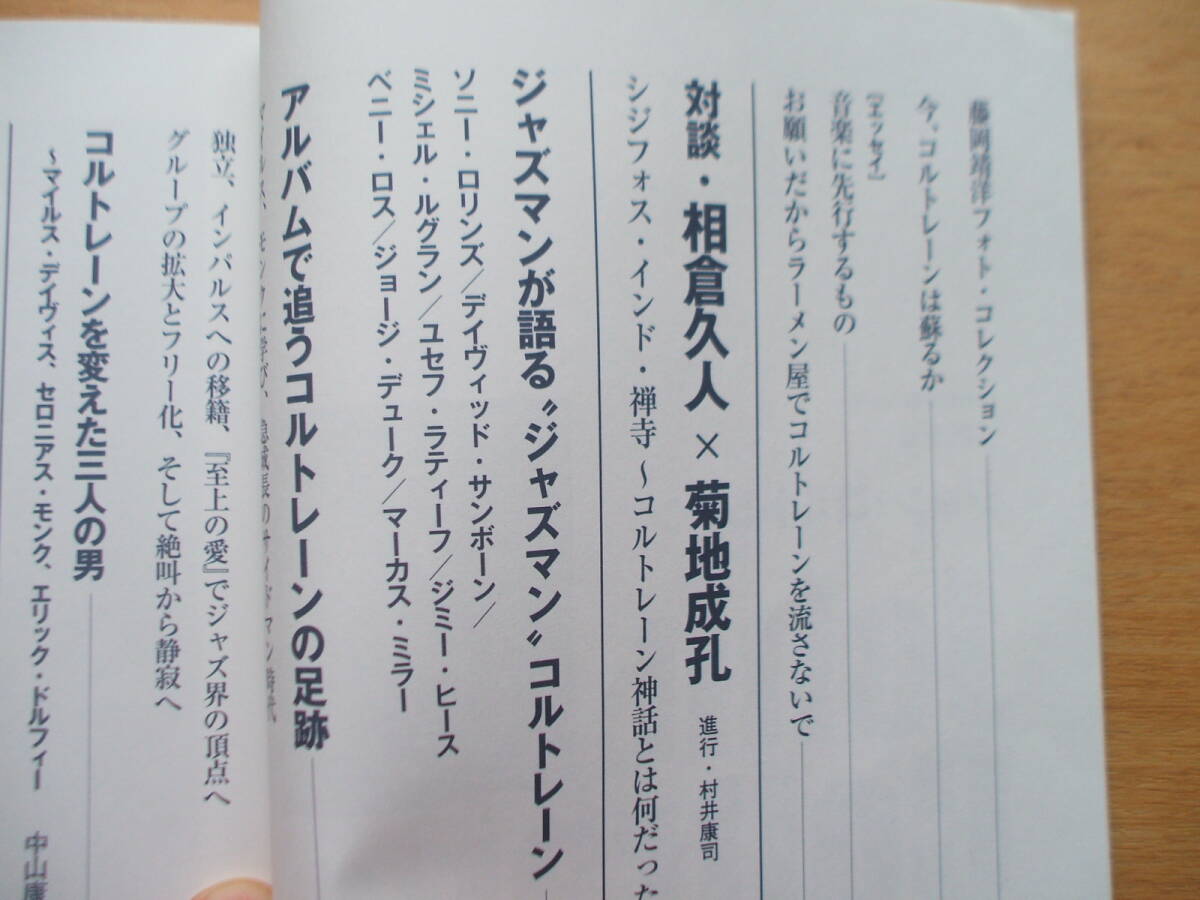 藤岡靖洋フォト・コレクション
今、コルトレーンは蘇るか
[エッセイ]
音楽に先行するもの
お願いだからラーメン屋でコルトレーンを流さないで
対談・相倉久人×菊地成孔 進行・村井康司
シジフォス・インド・禅寺〜コルトレーン神話とは何だった
ジャズマンが語る〝ジャズマン〟コルトレーン
ソニー・ロリンズ/デイヴィッド・サンボーン/
ミシェル・ルグラン/ユセフ・ラティーフ/ジミー・ヒース
ベニー・ロス/ジョージ・デューク/マーカス・ミラー
アルバムで追うコルトレーンの足跡
マイルス、モンクに学び、
独立、インパルスへの移籍、『至上の愛』でジャズ界の頂点へ
グループの拡大とフリー化、そして絶叫から静寂へ
コルトレーンを変えた三人の男
〜マイルス・デイヴィス、セロニアス・モンク、エリック・ドルフィー 中山康